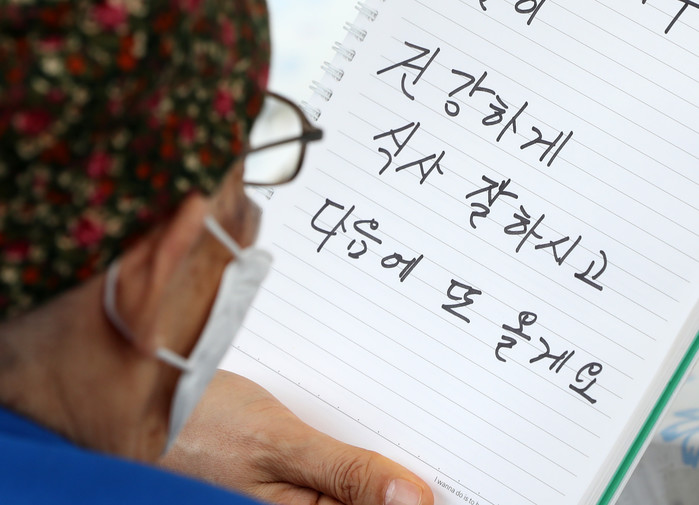 건강하게
식사 잘하시고
다음에 또 올게요
I wanna do is to